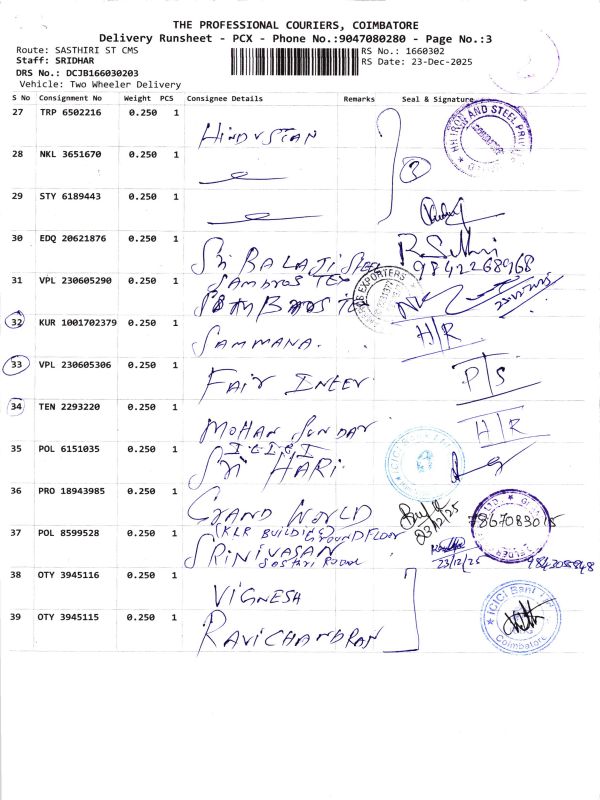 THE PROFESSIONAL COURIERS, COIMBATORE
Delivery Runsheet - PCX - Phone No.:9047080280 - Page No.:3
Route: SASTHIRI ST CMS
RS No.: 1660302
Staff: SRIDHAR
RS Date: 23-Dec-2025
DRS No.: DCJB166030203
Vehicle: Two Wheeler Delivery
S No Consignment No Weight PCS Consignee Details Remarks Seal & Signature
27 TRP 6502216 0.250 1 HINDUSTAN
28 NKL 3651670 0.250 1
29 STY 6189443 0.250 1
30 EDQ 20621876 0.250 1 Sri BALAJI STEEL
9842268968
31 VPL 230605290 0.250 1 SAMBROS TEX
23/12/2025
32 KUR 1001702379 0.250 1 SAMMANA. H/R
33 VPL 230605306 0.250 1 FAIR INTER P/S
34 TEN 2293220 0.250 1 MOHAN SUNDAR H/R
I.C.I.C.I
35 POL 6151035 0.250 1 Sri HARI.
36 PRO 18943985 0.250 1 GRAND WORLD
(KLR BUILDING) GROUND FLOOR
23/12/25
37 POL 8599528 0.250 1 SRINIVASAN
23/12/25
38 OTY 3945116 0.250 1 VIGNESH
39 OTY 3945115 0.250 1 RAVICHANDRAN
ICICI Bank
Coimbatore